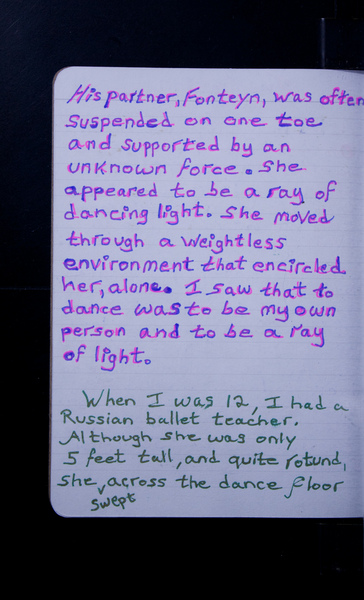 His partner, Fonteyn, was often
suspended on one toe
and supported by an
unknown force. She
appeared to be a ray of
dancing light. She moved
through a weightless
environment that encircled
her, alone. I saw that to
dance was to be my own
person and to be a ray
of light.
When I was 12, I had a
Russian ballet teacher.
Although she was only
5 feet tall, and quite rotund,
she swept across the dance floor